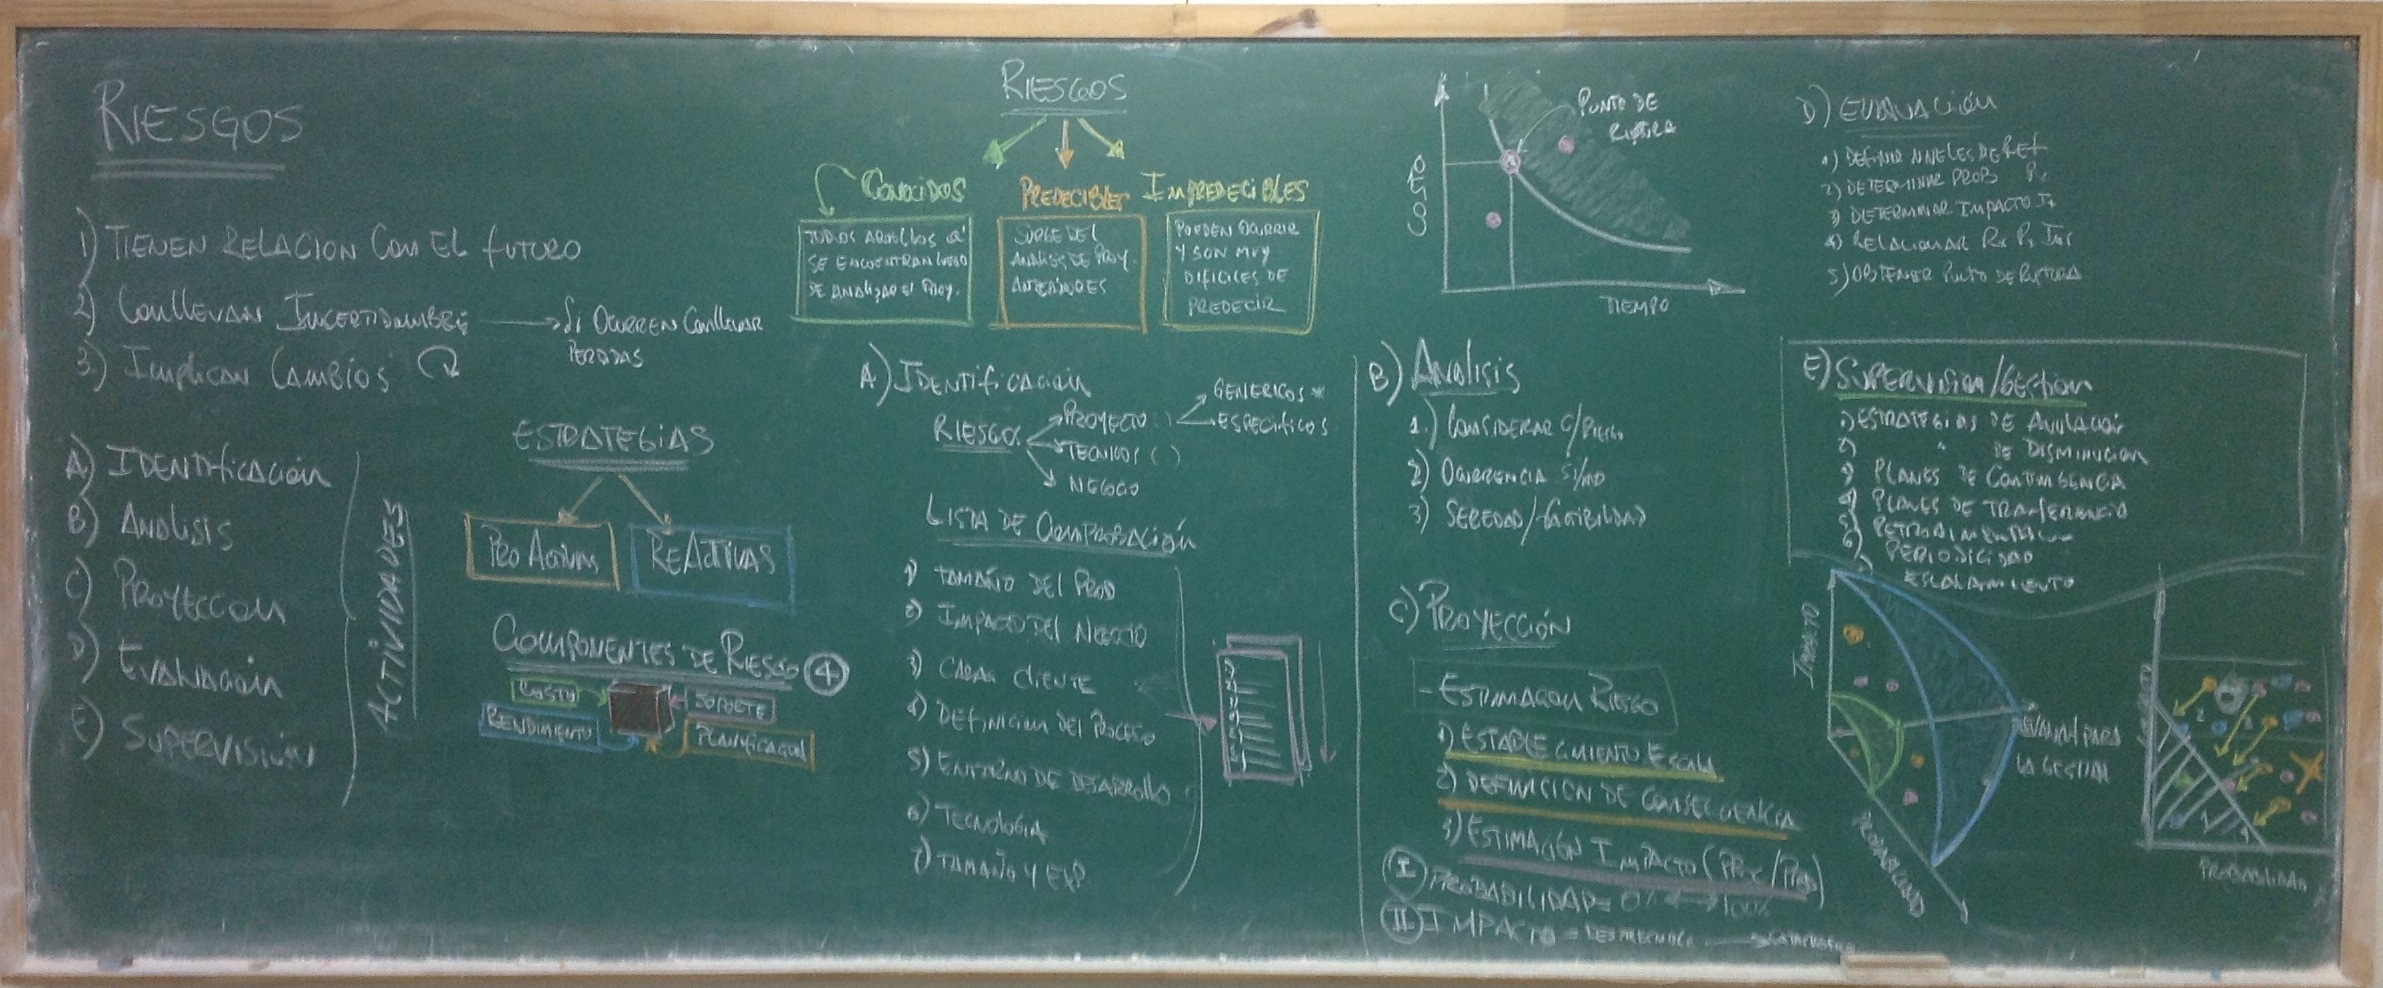 RIESGOS
1) TIENEN RELACION CON EL FUTURO
2) CONLLEVAN INCERTIDUMBRE → SI OCURREN CONLLEVAN PERDIDAS
3) IMPLICAN CAMBIOS
A) IDENTIFICACIÓN
B) ANALISIS
C) PROYECCION
D) EVALUACIÓN
E) SUPERVISIÓN
ACTIVIDADES
ESTRATEGIAS
PRO ACTIVAS
REACTIVAS
COMPONENTES DE RIESGO 4
COSTO
SOPORTE
RENDIMIENTO
PLANIFICACION
RIESGOS
CONOCIDOS
TODOS AQUELLOS Q'
SE ENCUENTRAN LUEGO
DE ANALIZAR EL PROY.
PREDECIBLES
SURGE DEL
ANALISIS DE PROY.
ANTERIORES
IMPREDECIBLES
PUEDEN OCURRIR
Y SON MUY
DIFICILES DE
PREDECIR
A) IDENTIFICACIÓN
RIESGOS
PROYECTO
GENERICOS *
ESPECIFICOS
TECNICOS ( )
NEGOCIO
LISTA DE COMPROBACIÓN
1) TAMAÑO DEL PROD
2) IMPACTO DEL NEGOCIO
3) CARAC CLIENTE
4) DEFINICION DEL PROCESO
5) ENTORNO DE DESARROLLO
6) TECNOLOGIA
7) TAMAÑO Y EXP.
COSTO
PUNTO DE
RUPTURA
TIEMPO
B) ANALISIS
1) CONSIDERAR C/RIESGO
2) OCURRENCIA SI/NO
3) SEREDAD/FACTIBILIDAD
C) PROYECCIÓN
- ESTIMACION RIESGO
1) ESTABLECIMIENTO ESCALA
2) DEFINICION DE CONSECUENCIA
3) ESTIMACIÓN IMPACTO (PROC/PROD)
I PROBABILIDAD = 0% → 100%
II IMPACTO = DESPRECIABLE → CATASTROFICO
D) EVALUACIÓN
1) DEFINIR NIVELES DE REF
2) DETERMINAR PROB
3) DETERMINAR IMPACTO
4) RELACIONAR
5) OBTENER PUNTO DE RUPTURA
E) SUPERVISION/GESTION
1) ESTRATEGIAS DE ANULACIÓN
2) " DE DISMINUCION
3) PLANES DE CONTINGENCIA
4) PLANES DE TRANSFERENCIA
5)
6) PERIODICIDAD
ESCALAMIENTO
IMPACTO
PROBABILIDAD
EVALUAR PARA
LA GESTION
PROBABILIDAD